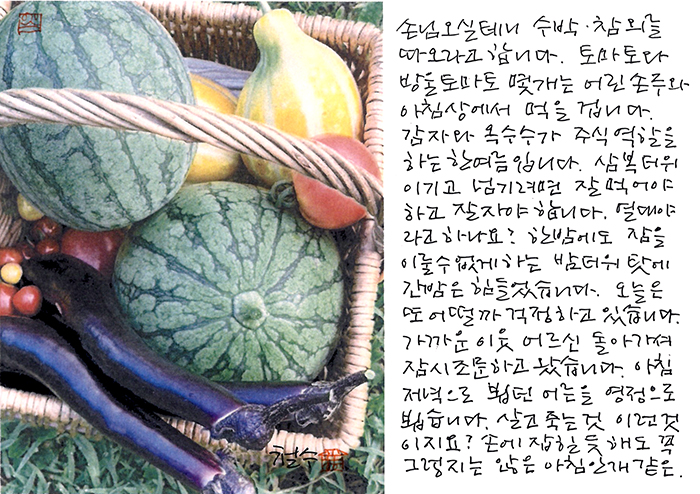 손님오실테니 수박·참외를
따오라고 합니다. 토마토와
방울토마토 몇개는 어린 손주와
아침상에서 먹을 겁니다.
감자와 옥수수가 주식 역할을
하는 한여름입니다. 삼복더위
이기고 넘기려면 잘 먹어야
하고 잘 자야 합니다. 열대야
라고 하나요? 한밤에도 잠을
이룰수 없게하는 밤더위 탓에
간밤은 힘들었습니다. 오늘은
또 어떨까 걱정하고 있습니다.
가까운 이웃 어르신 돌아가셔
잠시 조문하고 왔습니다. 아침
저녁으로 뵙던 어른을 영정으로
뵙습니다. 살고 죽는 것 이런것
이지요? 손에 잡힐 듯 해도 꼭
그렇지는 않은 아침안개 같은.
철수